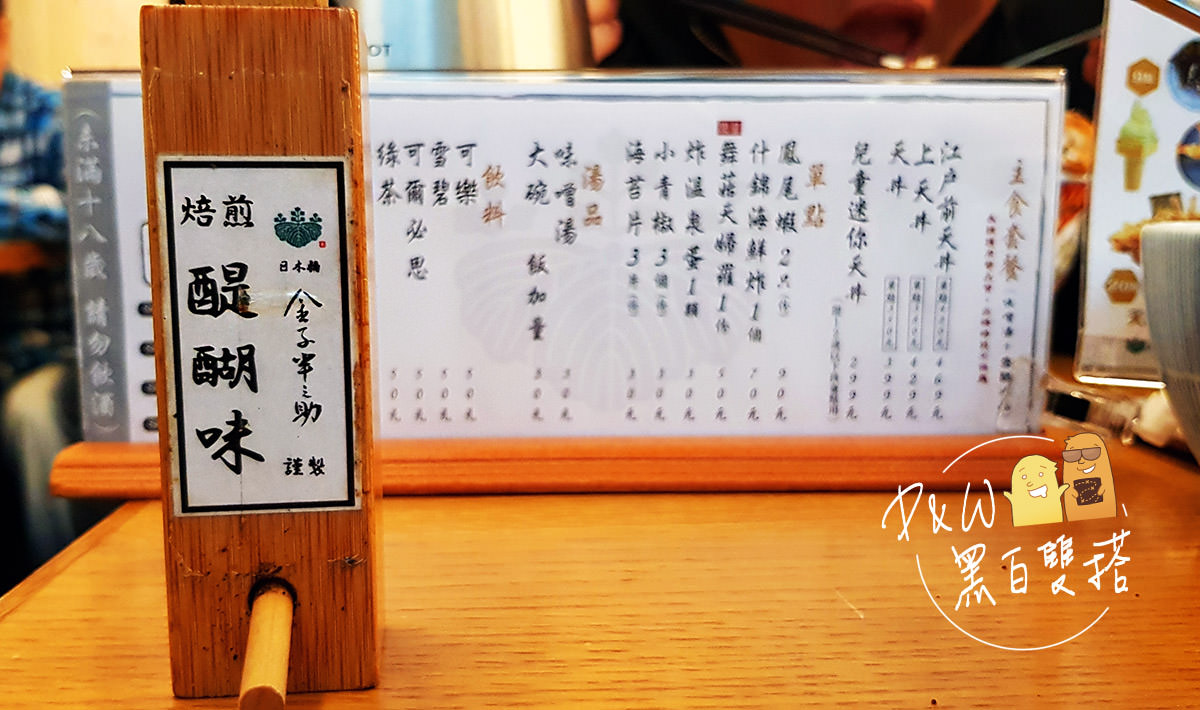 焙煎
醍醐味
日本橋
金子半之助
謹製
主食套餐
江戶前天丼 469元
上天丼 429元
天丼 399元
兒童迷你天丼 299元
單點
鳳尾蝦2只/份 90元
什錦海鮮炸1個
舞菇天婦羅1份 50元
炸溫泉蛋1顆
小青椒3個/份
海苔片3片/份
湯品
味噌湯
大碗 飯加量 30元
飲料
可樂
雪碧
可爾必思
綠茶
（未滿十八歲 請勿飲酒）
P&W
黑白雙搭